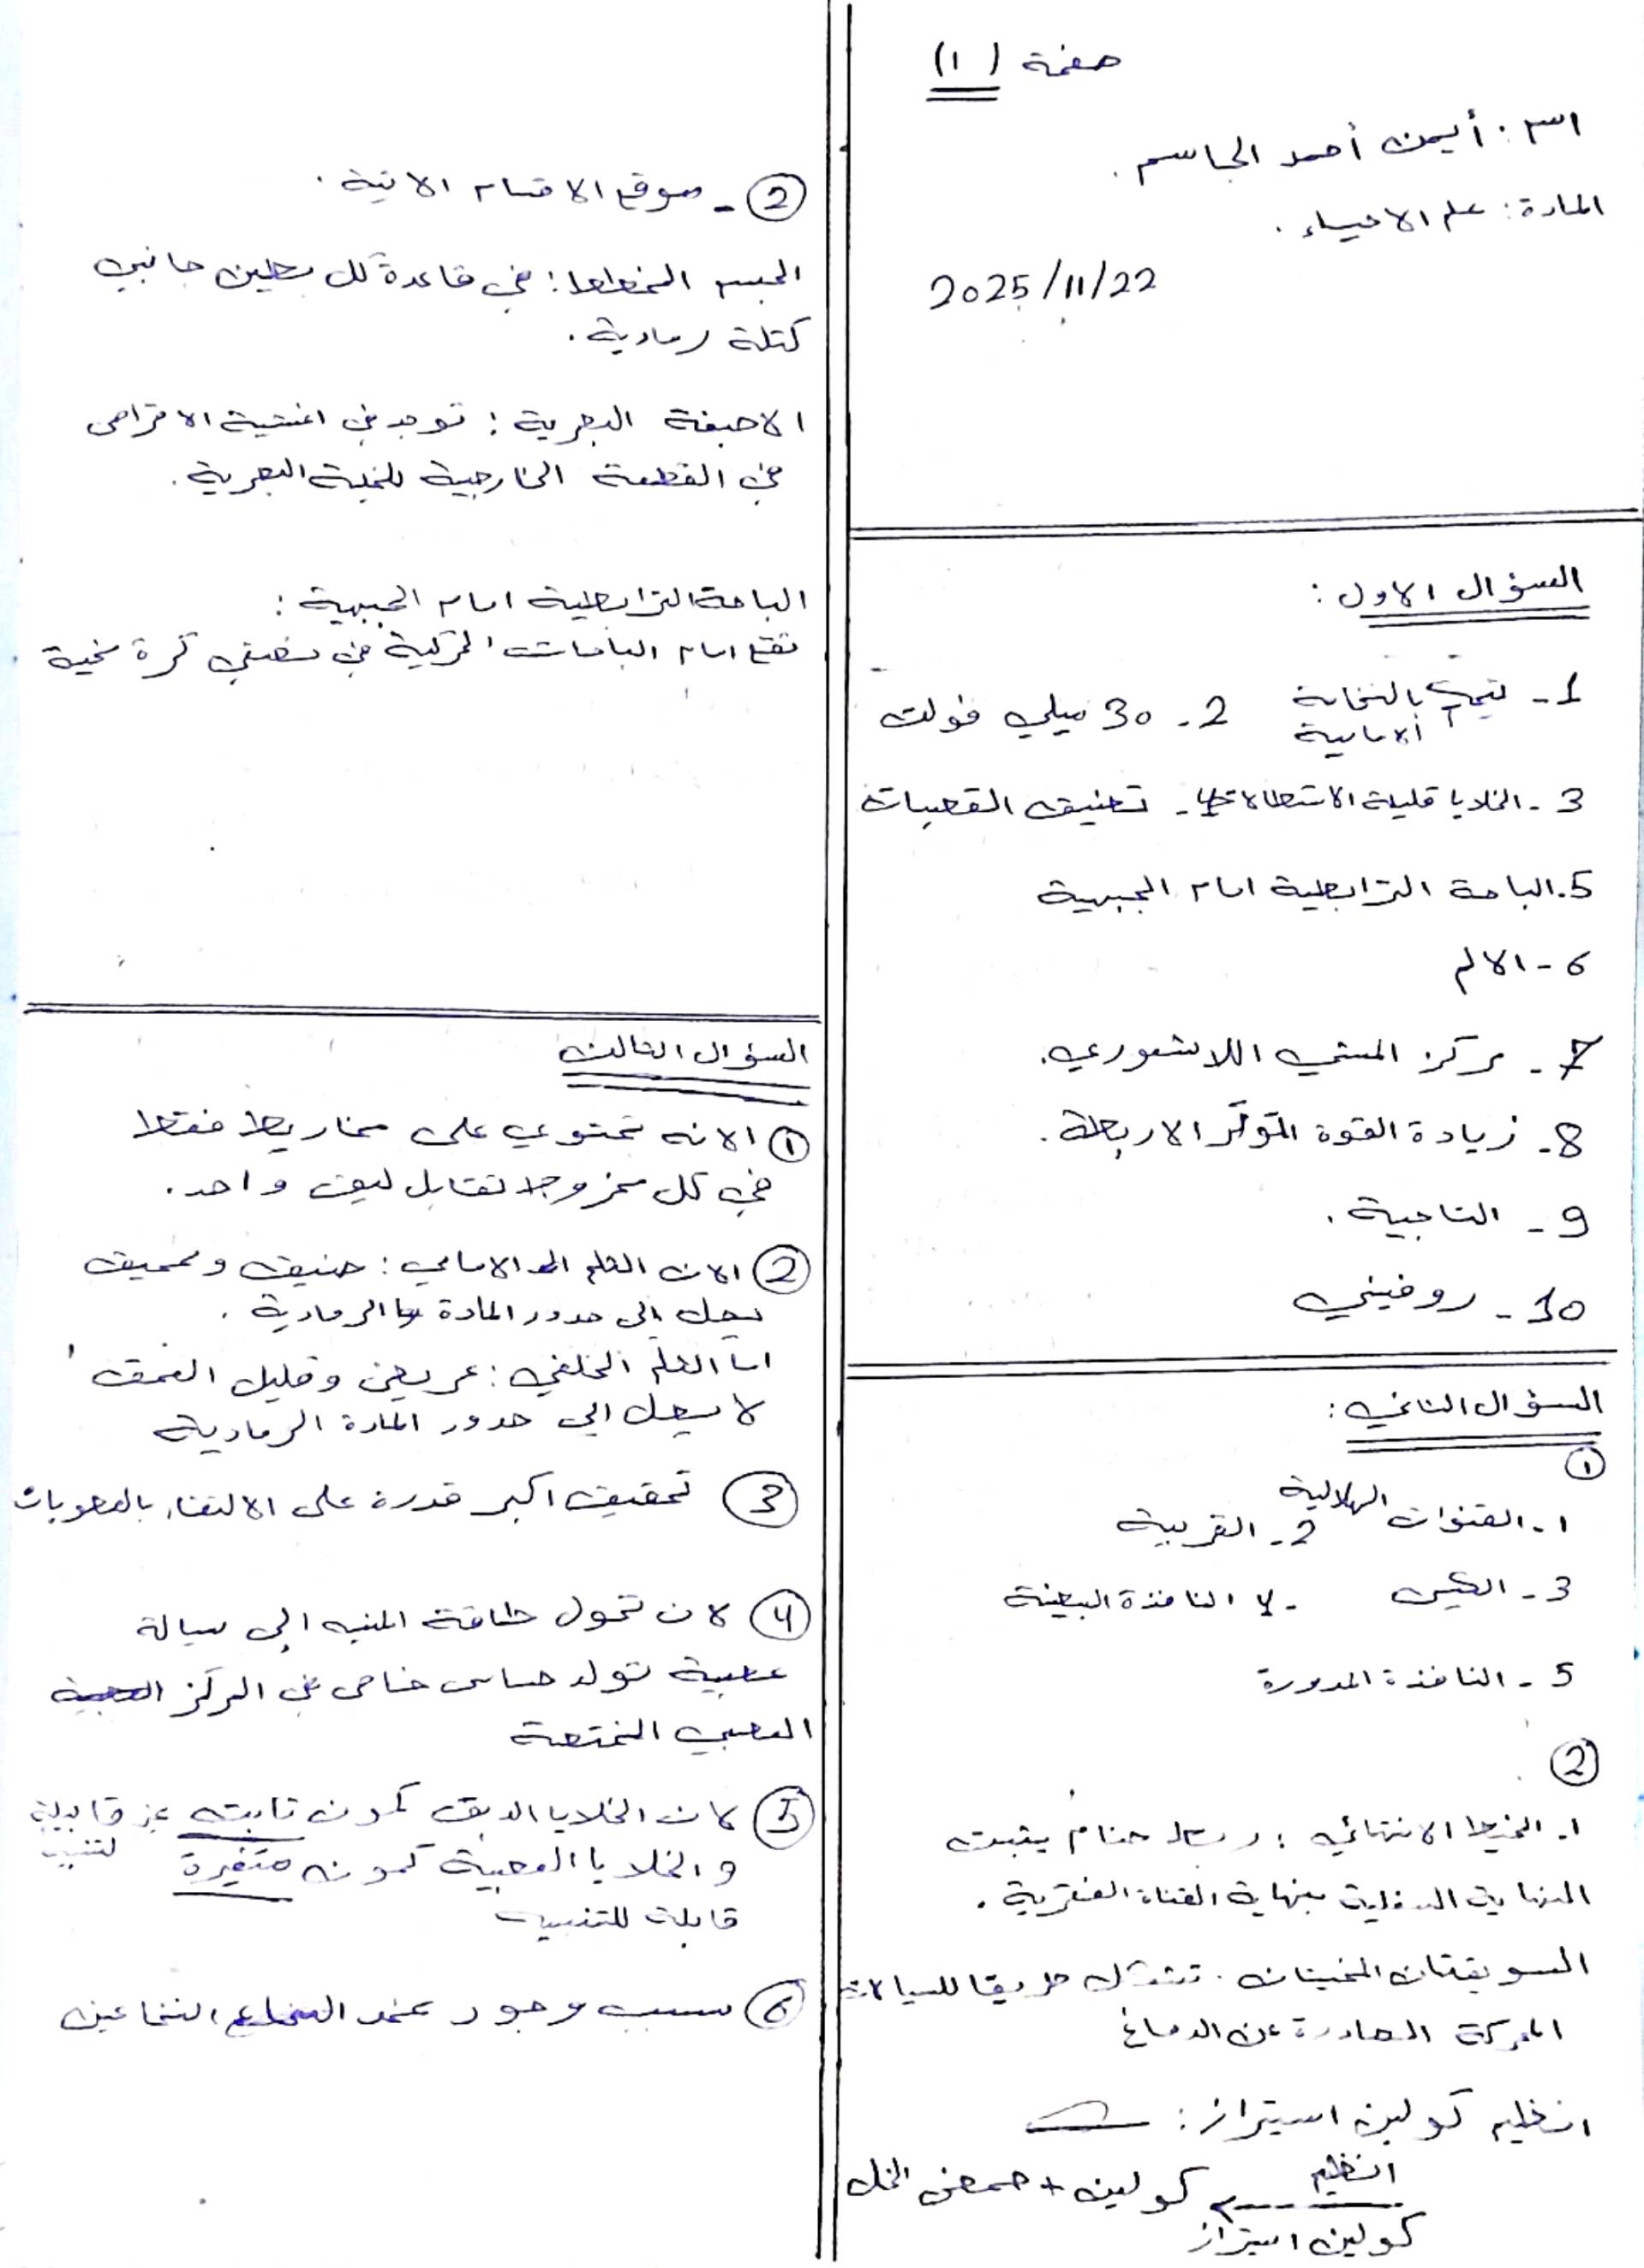 صفحة (١)
اسم : أيمن أحمد الجاسم .
المادة : علم الاحياء .
2025/11/22
السؤال الاول :
1- تيمي بالنخامة الامامية 2- 30 ميلي فولت
3- الخلايا قليلة الاستطالات 4- تضيق القصبات
5. الباحة الترابطية امام الجبهية
6- الالم
7- مركز المشي اللاشعوري .
8- زيادة القوة المؤثرة لاربطة .
9- التاجية .
10- روفيني
السؤال الثاني :
①
1- القنوات الهلالية 2- القريبة
3- الكييس 4- النافذة البيضية
5- النافذة المدورة
②
1- الخيط الانتهائي : رباط ضام يثبت
النهاية السفلية بنهاية القناة الفقرية .
السويقتان المخيتان . تشكل طريقا للسيالات
المحركة الصادرة عن الدماغ
انظيم كولين استيراز :
انظيم
كولين + حمض الخل
كولين استيراز
②- موقع الاقسام الاتية .
الجسم المخطط : في قاعدة كل بطين جانبي
كتلة رمادية .
الاصبغة البصرية : توجد في اغشية الاقراص
في القطعة الخارجية للخلية البصرية .
الباحة الترابطية امام الجبهية :
تقع امام الباحات الحركية في نصفي كرة مخية
السؤال الثالث
① الانه تحتوي على مخاريط فقط
في كل مخروط تقابل ليف واحد .
② الان الثلم الامامي : ضيق وعميق
يصل إلى حدود المادة الرمادية .
اما الثلم الخلفي : عريض وقليل العمق
لا يصل الى حدود المادة الرمادية
③ تحقيق اكبر قدرة على الالتقاء بالعصوبات
④ لان تحول طاقة المنبه الى سيالة
عصبية تولد حساس خاص في المركز
العصبي المختصة
⑤ كان الخلايا الدبق كمون ثابت غير قابلية لتنبيه
و الخلايا العصبية كمونه متغيرة
قابلة للتنبيه
⑥ بسبب وجود غمد النخاعين